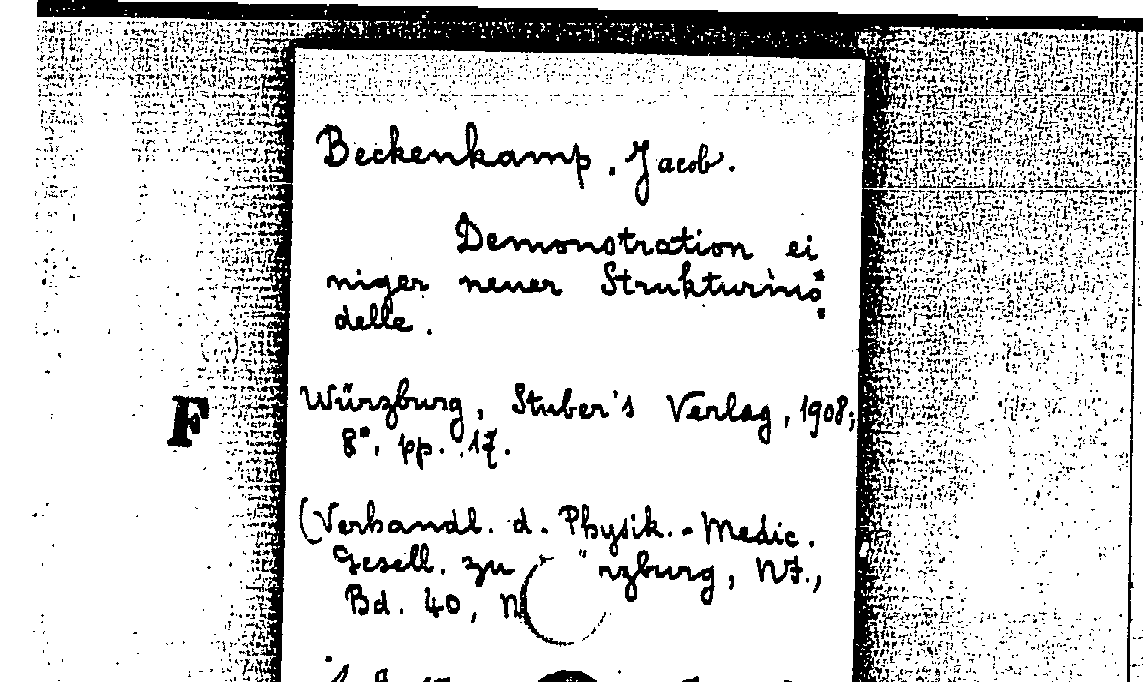 Beckenkamp, Jacob.
Demonstration ei
niger neuer Strukturmo
delle.
F
Würzburg, Stuber's Verlag, 1908;
8°, pp. 17.
(Verhandl. d. Physik.-Medic.
Gesell. zu rzburg, NF.,
Bd. 40, N